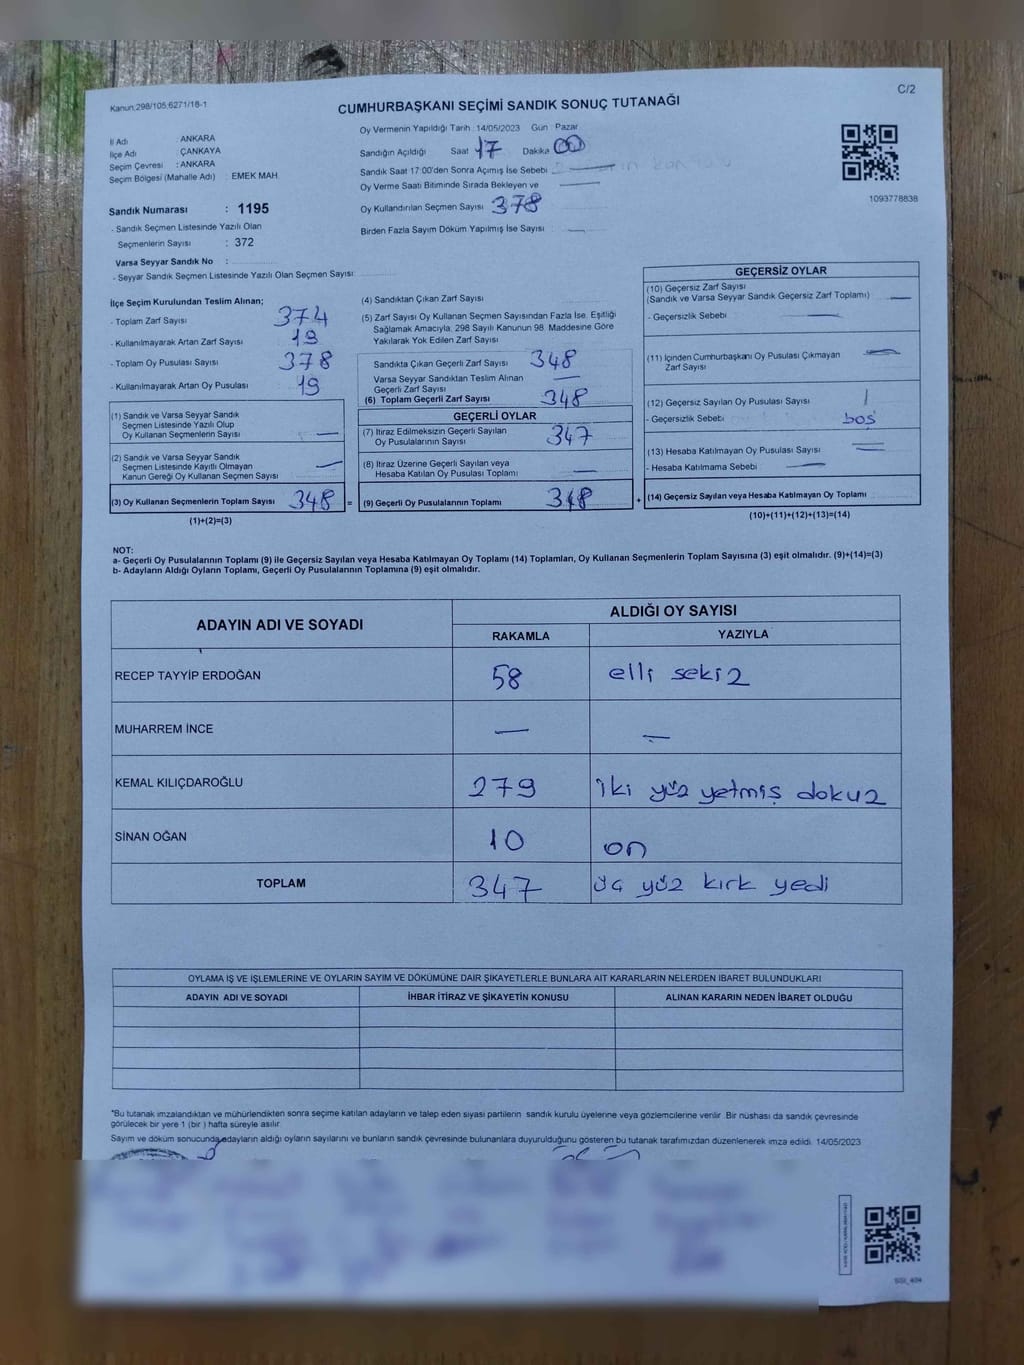 Kanun:298/105;6271/18-1
C/2
CUMHURBAŞKANI SEÇİMİ SANDIK SONUÇ TUTANAĞI
İl Adı : ANKARA
İlçe Adı : ÇANKAYA
Seçim Çevresi : ANKARA
Seçim Bölgesi (Mahalle Adı) : EMEK MAH.
Sandık Numarası : 1195
- Sandık Seçmen Listesinde Yazılı Olan
Seçmenlerin Sayısı : 372
Varsa Seyyar Sandık No :
- Seyyar Sandık Seçmen Listesinde Yazılı Olan Seçmen Sayısı:
Oy Vermenin Yapıldığı Tarih : 14/05/2023 Gün : Pazar
Sandığın Açıldığı Saat 17 Dakika 00
Sandık Saat 17:00'den Sonra Açımış İse Sebebi
Oy Verme Saati Bitiminde Sırada Bekleyen ve
Oy Kullandırılan Seçmen Sayısı 378
Birden Fazla Sayım Döküm Yapılmış İse Sayısı
1093778838
İlçe Seçim Kurulundan Teslim Alınan;
- Toplam Zarf Sayısı 374
- Kullanılmayarak Artan Zarf Sayısı 19
- Toplam Oy Pusulası Sayısı 378
- Kullanılmayarak Artan Oy Pusulası 19
(1) Sandık ve Varsa Seyyar Sandık
Seçmen Listesinde Yazılı Olup
Oy Kullanan Seçmenlerin Sayısı —
(2) Sandık ve Varsa Seyyar Sandık
Seçmen Listesinde Kayıtlı Olmayan
Kanun Gereği Oy Kullanan Seçmen Sayısı —
(3) Oy Kullanan Seçmenlerin Toplam Sayısı 348 =
(1)+(2)=(3)
(4) Sandıktan Çıkan Zarf Sayısı
(5) Zarf Sayısı Oy Kullanan Seçmen Sayısından Fazla İse, Eşitliği
Sağlamak Amacıyla, 298 Sayılı Kanunun 98. Maddesine Göre
Yakılarak Yok Edilen Zarf Sayısı
Sandıkta Çıkan Geçerli Zarf Sayısı 348
Varsa Seyyar Sandıktan Teslim Alınan
Geçerli Zarf Sayısı —
(6) Toplam Geçerli Zarf Sayısı 348
GEÇERLİ OYLAR
(7) İtiraz Edilmeksizin Geçerli Sayılan
Oy Pusulalarının Sayısı 347
(8) İtiraz Üzerine Geçerli Sayılan veya
Hesaba Katılan Oy Pusulası Toplamı —
(9) Geçerli Oy Pusulalarının Toplamı 348 +
GEÇERSİZ OYLAR
(10) Geçersiz Zarf Sayısı
(Sandık ve Varsa Seyyar Sandık Geçersiz Zarf Toplamı) —
- Geçersizlik Sebebi —
(11) İçinden Cumhurbaşkanı Oy Pusulası Çıkmayan
Zarf Sayısı
(12) Geçersiz Sayılan Oy Pusulası Sayısı 1
- Geçersizlik Sebebi boş
(13) Hesaba Katılmayan Oy Pusulası Sayısı
- Hesaba Katılmama Sebebi —
(14) Geçersiz Sayılan veya Hesaba Katılmayan Oy Toplamı
(10)+(11)+(12)+(13)=(14)
NOT:
a- Geçerli Oy Pusulalarının Toplamı (9) ile Geçersiz Sayılan veya Hesaba Katılmayan Oy Toplamı (14) Toplamları, Oy Kullanan Seçmenlerin Toplam Sayısına (3) eşit olmalıdır. (9)+(14)=(3)
b- Adayların Aldığı Oyların Toplamı, Geçerli Oy Pusulalarının Toplamına (9) eşit olmalıdır.
ADAYIN ADI VE SOYADI ALDIĞI OY SAYISI
RAKAMLA YAZIYLA
RECEP TAYYİP ERDOĞAN 58 elli sekiz
MUHARREM İNCE — —
KEMAL KILIÇDAROĞLU 279 iki yüz yetmiş dokuz
SİNAN OĞAN 10 on
TOPLAM 347 üç yüz kırk yedi
OYLAMA İŞ VE İŞLEMLERİNE VE OYLARIN SAYIM VE DÖKÜMÜNE DAİR ŞİKAYETLERLE BUNLARA AİT KARARLARIN NELERDEN İBARET BULUNDUKLARI
ADAYIN ADI VE SOYADI İHBAR İTİRAZ VE ŞİKAYETİN KONUSU ALINAN KARARIN NEDEN İBARET OLDUĞU
*Bu tutanak imzalandıktan ve mühürlendikten sonra seçime katılan adayların ve talep eden siyasi partilerin sandık kurulu üyelerine veya gözlemcilerine verilir. Bir nüshası da sandık çevresinde
görülecek bir yere 1 (bir) hafta süreyle asılır.
Sayım ve döküm sonucunda adayların aldığı oyların sayılarını ve bunların sandık çevresinde bulunanlara duyurulduğunu gösteren bu tutanak tarafımızdan düzenlenerek imza edildi. 14/05/2023